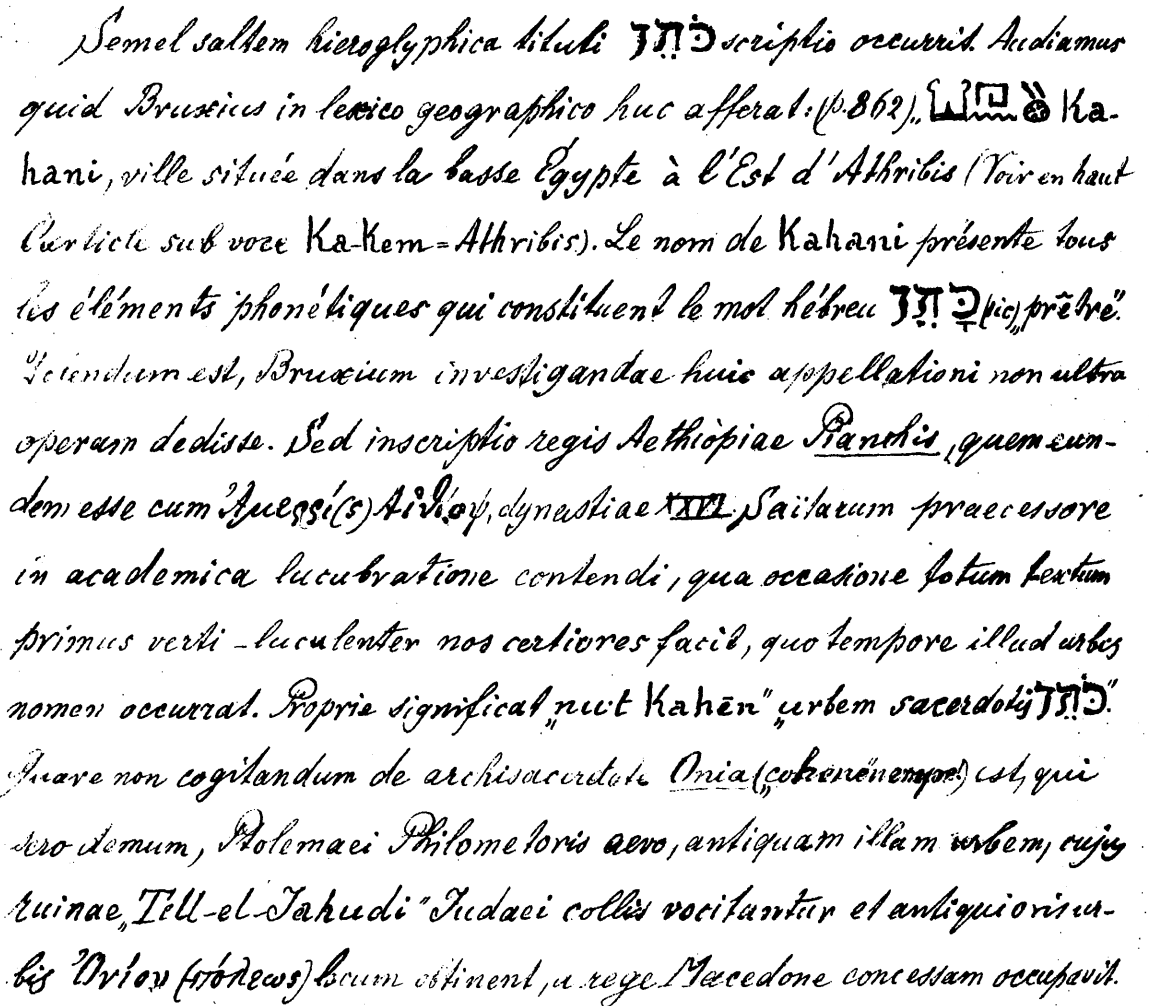 Semel saltem hieroglyphica tituli כֹּהֵן scriptio occurrit. Audiamus
quid Bruxius in lexico geographico huc afferat: (p. 862) „ Ka-
hani, ville située dans la basse Égypte à l'Est d'Athribis (Voir en haut
l'article sub voce Ka-Kem = Athribis). Le nom de Kahani présente tous
les éléments phonétiques qui constituent le mot hébreu כָּהֵן (sic) „prêtre".
Sciendum est, Bruxium investigandae huic appellationi non ultra
operam dedisse. Sed inscriptio regis Aethiopiae Pianchis, quem eun-
dem esse cum Ἀμεῤῥί(ς) Αἰθίοψ, dynastiae XXVI Saïtarum praecessore
in academica lucubratione contendi, qua occasione totum textum
primus verti – luculenter nos certiores facit, quo tempore illud urbis
nomen occurrat. Proprie significat „nu·t Kahēn" „urbem sacerdotis כֹּהֵן".
Quare non cogitandum de archisacerdote Onia („cohene" nempe!) est, qui
sero demum, Ptolemaei Philometoris aevo, antiquam illam urbem, cujus
ruinae „Tell-el-Jahudi" Judaei collis vocitantur et antiquioris ur-
bis Ὀνίου (πόλεως) locum obtinent, a rege Macedone concessam occupavit.